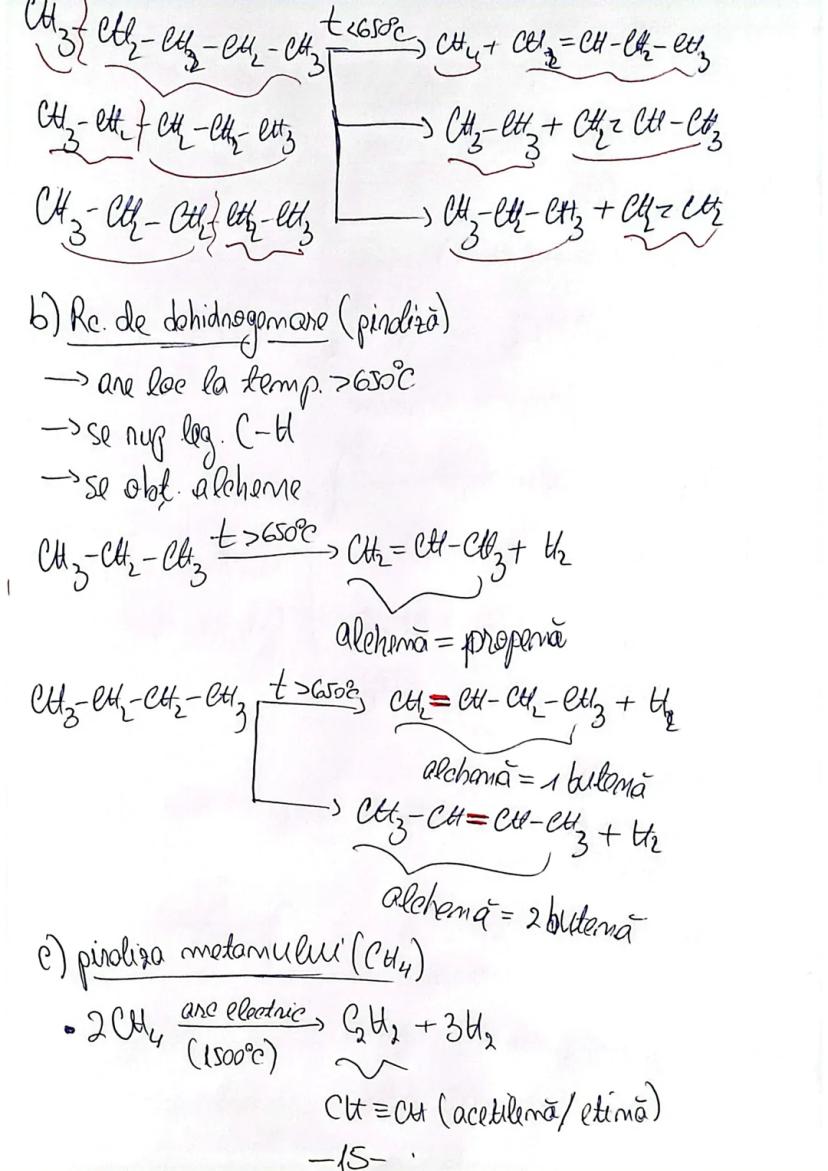 CH₃-CH₂-CH₂-CH₂-CH₃ t<650°C → CH₄ + CH₂=CH-CH₂-CH₃
CH₃-CH₂-CH₂-CH₂-CH₃ → CH₃-CH₃ + CH₂=CH-CH₃
CH₃-CH₂-CH₂-CH₂-CH₃ → CH₃-CH₂-CH₃ + CH₂=CH₂
b) Rc. de dehidrogenare (piroliză)
→ are loc la temp. >650°C
→ se rup leg. C-H
→ se obț. alchene
CH₃-CH₂-CH₃ t>650°C → CH₂=CH-CH₃ + H₂
alchenă = propenă
CH₃-CH₂-CH₂-CH₃ t>650°C → CH₂=CH-CH₂-CH₃ + H₂
alchenă = 1 butenă
→ CH₃-CH=CH-CH₃ + H₂
alchenă = 2 butenă
c) piroliza metanului (CH₄)
• 2CH₄ arc electric → C₂H₂ + 3H₂
(1500°C)
CH≡CH (acetilenă/etină)
-15-